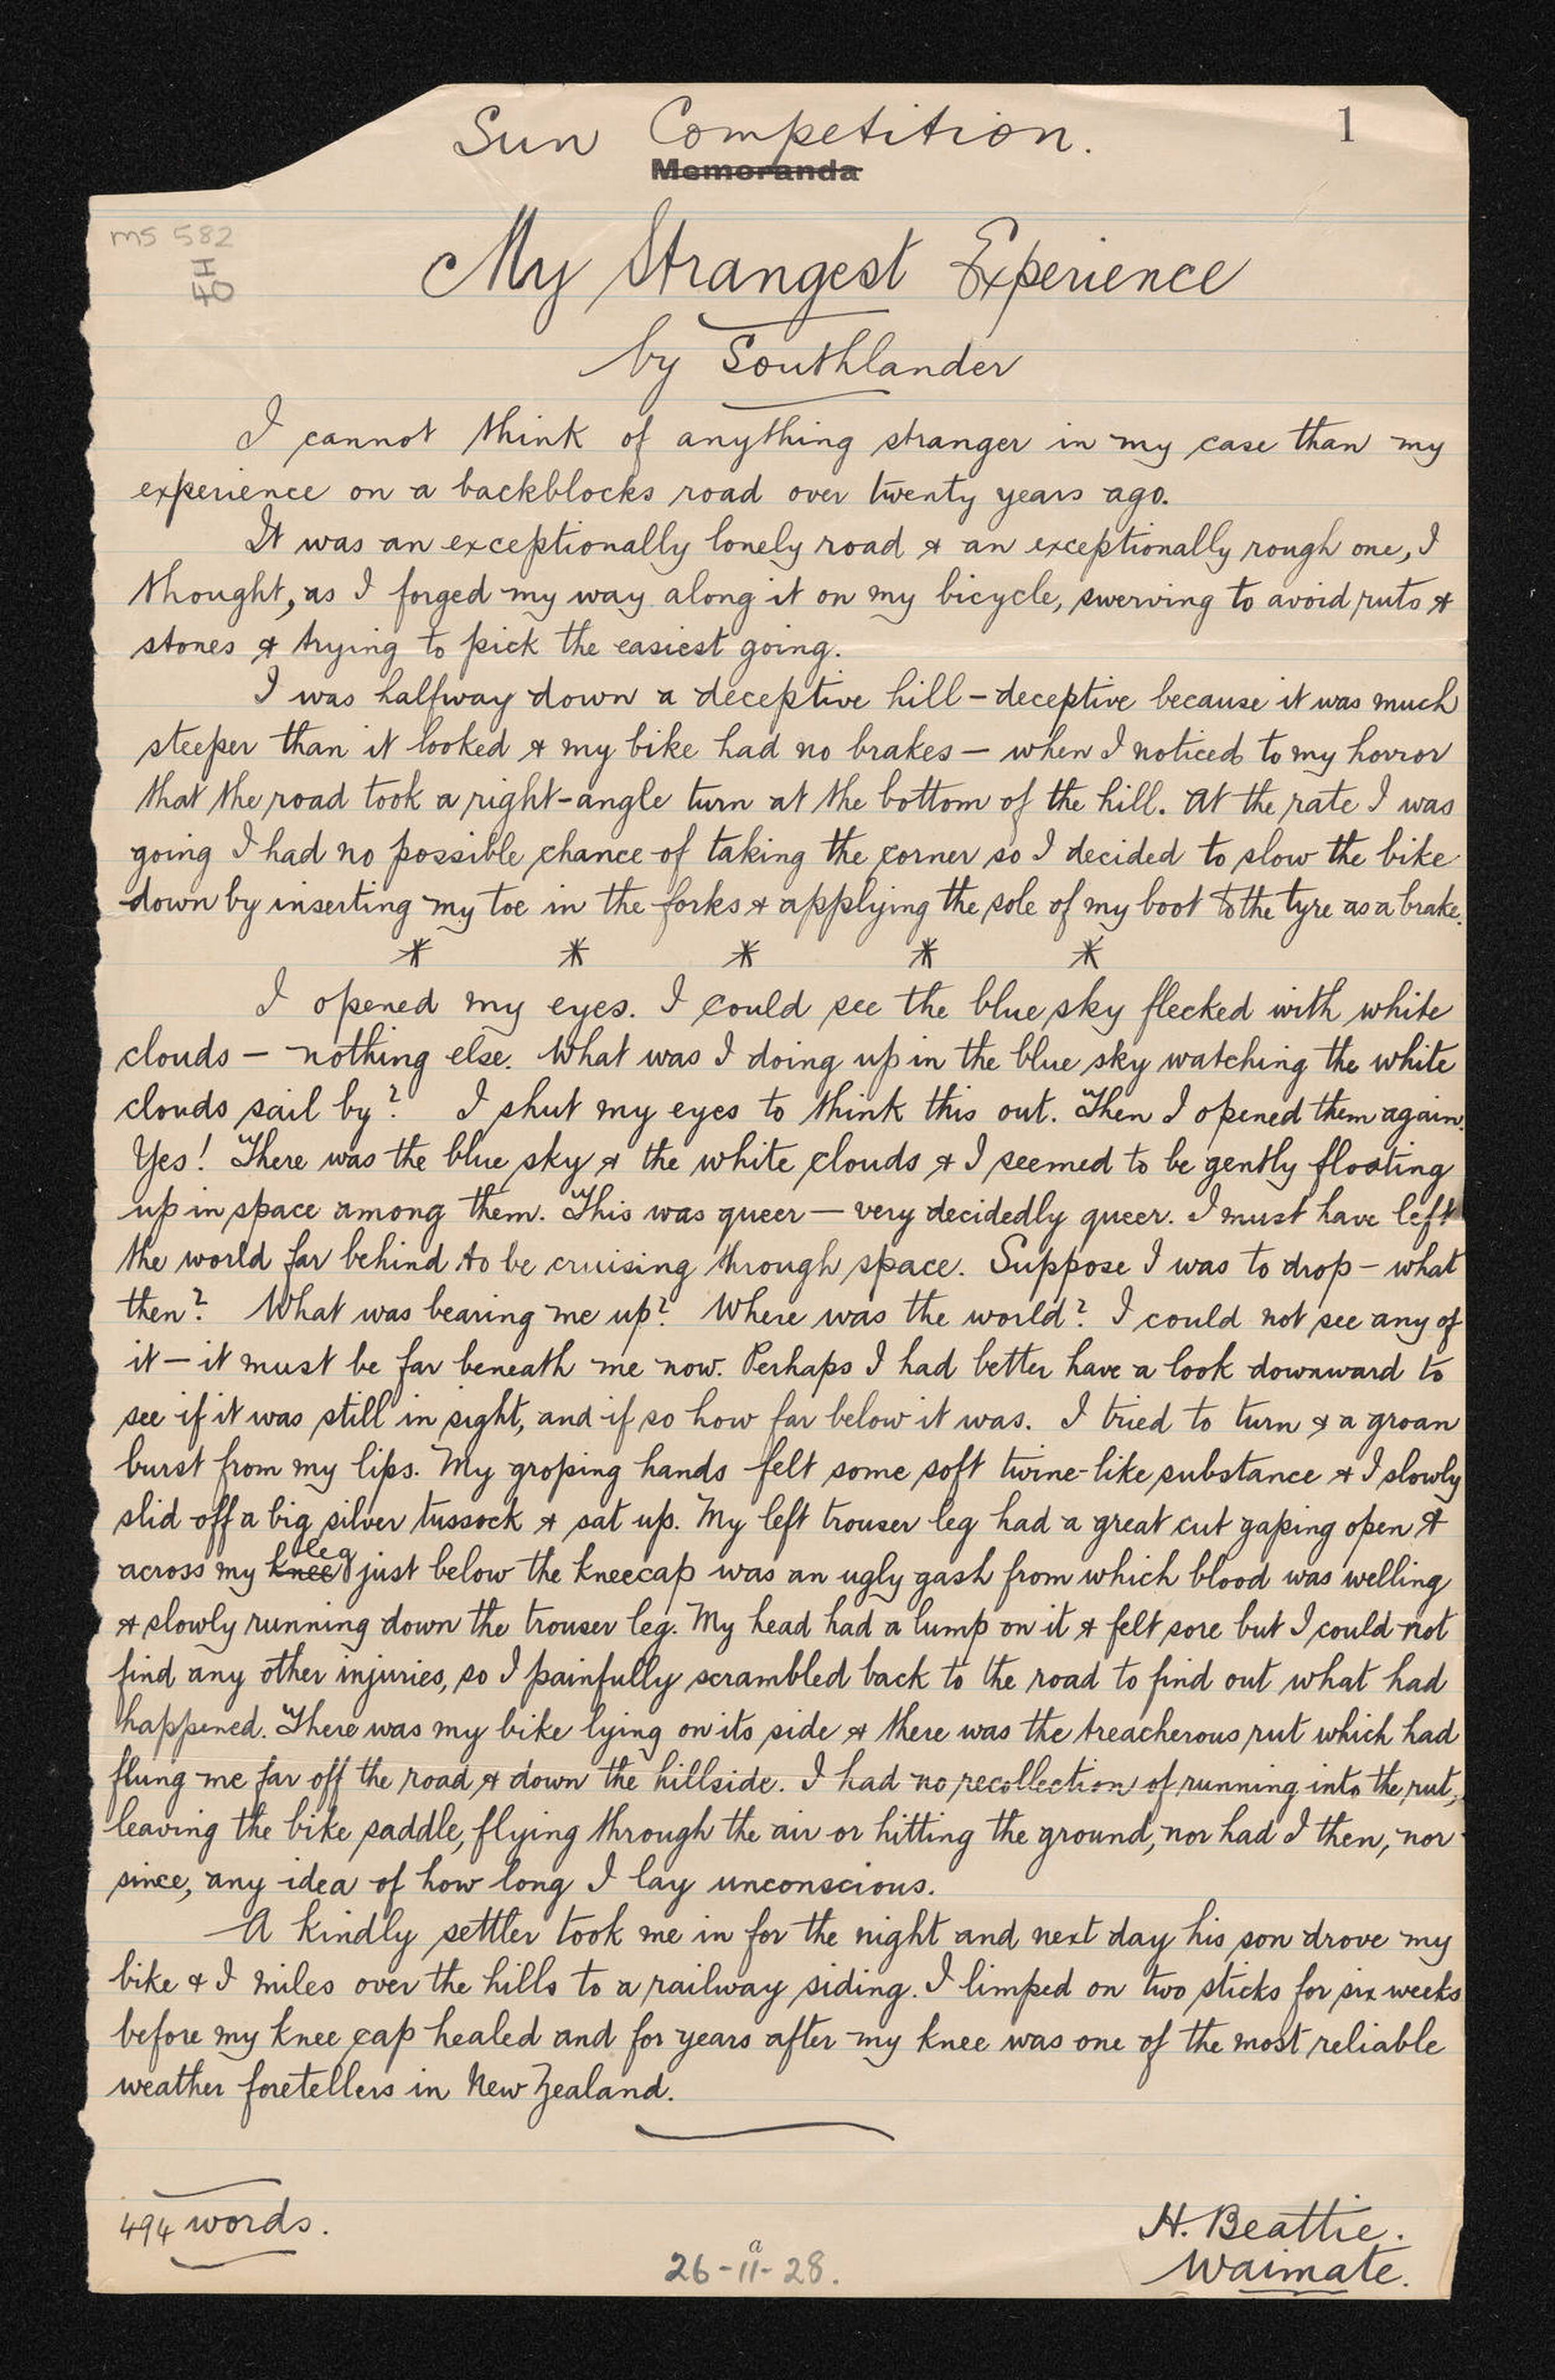 Sun Competition.
1
Memoranda
ms 582
I
40
My Strangest Experience
by Southlander
I cannot think of anything stranger in my case than my
experience on a backblocks road over twenty years ago.
It was an exceptionally lonely road & an exceptionally rough one, I
thought, as I forged my way along it on my bicycle, swerving to avoid ruts &
stones & trying to pick the easiest going.
I was halfway down a deceptive hill – deceptive because it was much
steeper than it looked & my bike had no brakes – when I noticed to my horror
that the road took a right-angle turn at the bottom of the hill. At the rate I was
going I had no possible chance of taking the corner so I decided to slow the bike
down by inserting my toe in the forks & applying the sole of my boot to the tyre as a brake.
* * * * *
I opened my eyes. I could see the blue sky flecked with white
clouds – nothing else. What was I doing up in the blue sky watching the white
clouds sail by? I shut my eyes to think this out. Then I opened them again.
Yes! There was the blue sky & the white clouds & I seemed to be gently floating
up in space among them. This was queer – very decidedly queer. I must have left
the world far behind to be cruising through space. Suppose I was to drop – what
then? What was bearing me up? Where was the world? I could not see any of
it – it must be far beneath me now. Perhaps I had better have a look downward to
see if it was still in sight, and if so how far below it was. I tried to turn & a groan
burst from my lips. My groping hands felt some soft twine-like substance & I slowly
slid off a big silver tussock & sat up. My left trouser leg had a great cut gaping open &
across my knee leg just below the kneecap was an ugly gash from which blood was welling
& slowly running down the trouser leg. My head had a lump on it & felt sore but I could not
find any other injuries, so I painfully scrambled back to the road to find out what had
happened. There was my bike lying on its side & there was the treacherous rut which had
flung me far off the road & down the hillside. I had no recollection of running into the rut,
leaving the bike saddle, flying through the air or hitting the ground, nor had I then, nor
since, any idea of how long I lay unconscious.
A kindly settler took me in for the night and next day his son drove my
bike & I miles over the hills to a railway siding. I limped on two sticks for six weeks
before my knee cap healed and for years after my knee was one of the most reliable
weather foretellers in New Zealand.
494 words.
H. Beattie.
26-11-28.
Waimate.